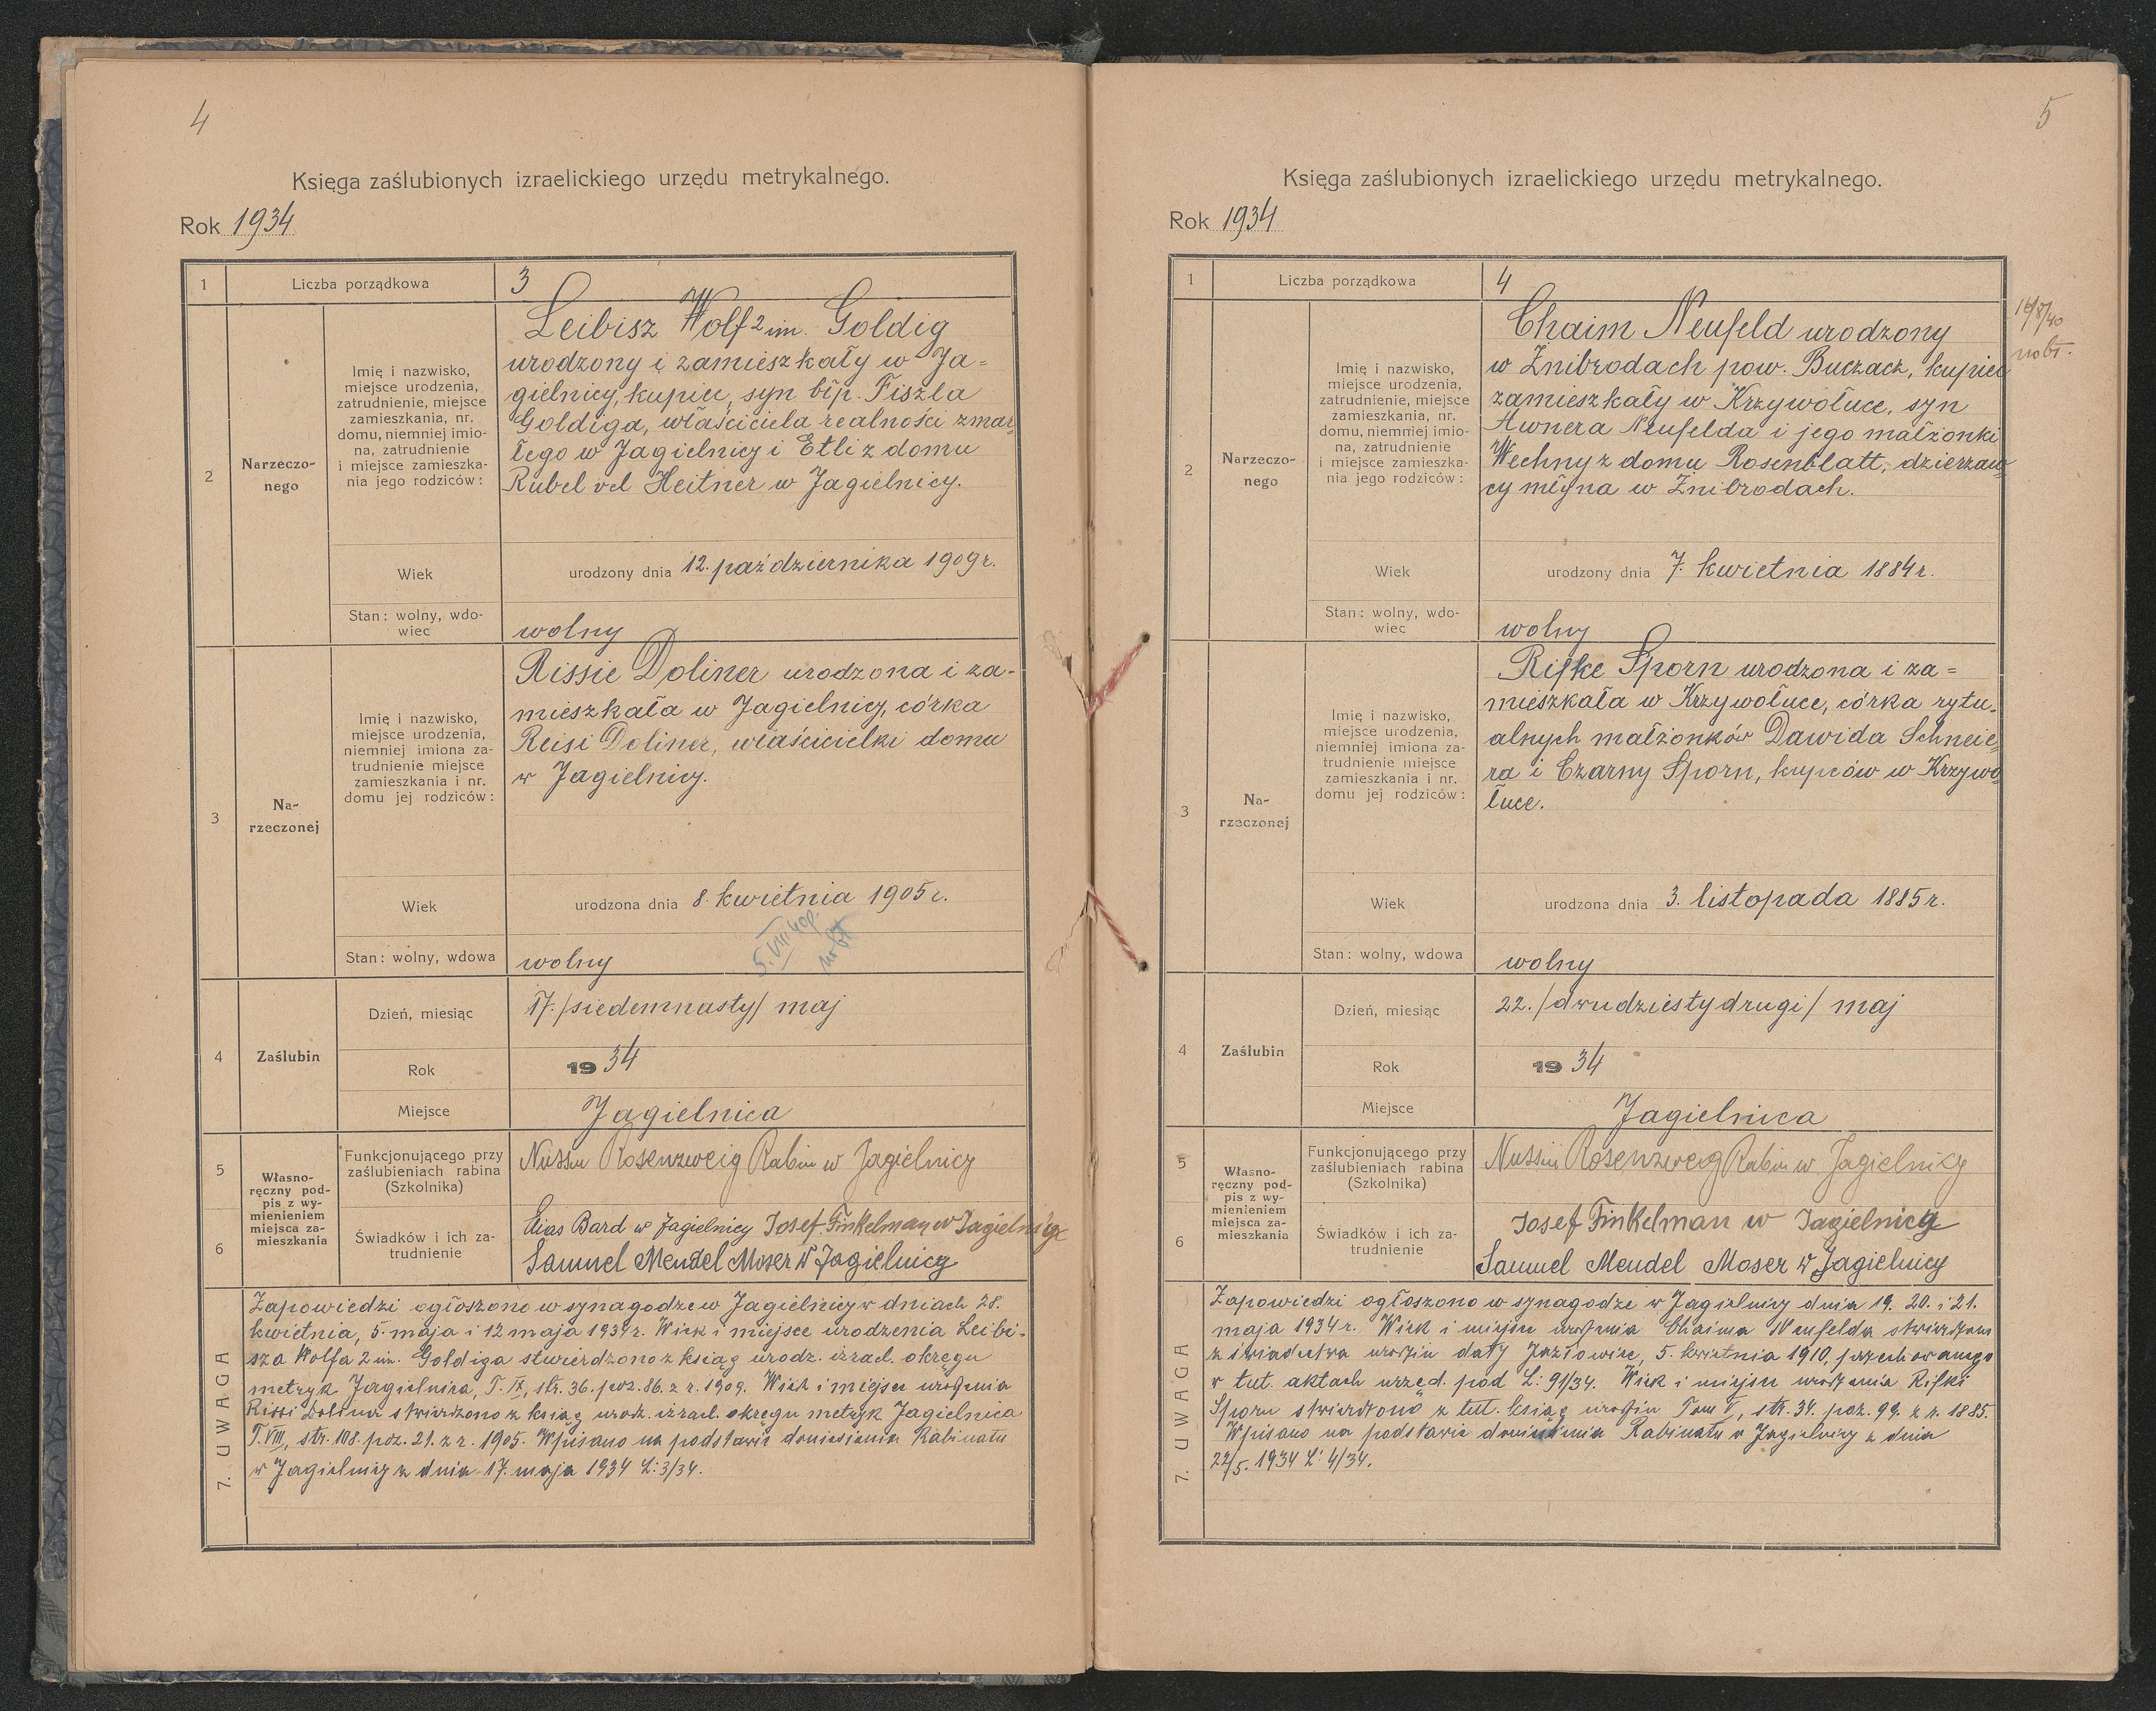 4
Księga zaślubionych izraelickiego urzędu metrykalnego.
Rok 1934
1 Liczba porządkowa 3
2
Narzeczo-
nego
Imię i nazwisko,
miejsce urodzenia,
zatrudnienie, miejsce
zamieszkania, nr.
domu, niemniej imio-
na, zatrudnienie
i miejsce zamieszka-
nia jego rodziców:
Leibisz Wolf 2 im. Goldig
urodzony i zamieszkały w Ja=
gielnicy, kupiec, syn błp. Fiszla
Goldiga, właściciela realności zmar=
łego w Jagielnicy i Etli z domu
Rubel vel Heitner w Jagielnicy.
Wiek urodzony dnia 12. października 1909 r.
Stan: wolny, wdo-
wiec wolny
3
Na-
rzeczonej
Imię i nazwisko,
miejsce urodzenia,
niemniej imiona za-
trudnienie miejsce
zamieszkania i nr.
domu jej rodziców:
Rissie Doliner urodzona i za-
mieszkała w Jagielnicy, córka
Reisi Doliner, właścicielki domu
w Jagielnicy.
Wiek urodzona dnia 8. kwietnia 1905 r.
Stan: wolny, wdowa wolny
4 Zaślubin
Dzień, miesiąc 17. /siedemnasty/ maj
Rok 1934
Miejsce Jagielnica
5
6
Własno-
ręczny pod-
pis z wy-
mienieniem
miejsca za-
mieszkania
Funkcjonującego przy
zaślubieniach rabina
(Szkolnika)
Nussin Rosenzweig Rabin w Jagielnicy
Świadków i ich za-
trudnienie
Elias Bard w Jagielnicy Josef Finkelman w Jagielnicy
Samuel Mendel Moser w Jagielnicy
7. UWAGA
Zapowiedzi ogłoszono w synagodze w Jagielnicy w dniach 28.
kwietnia, 5. maja i 12 maja 1934 r. Wiek i miejsce urodzenia Leibi-
sza Wolfa 2 im. Goldiga stwierdzono z ksiąg urodz. izrael. okręgu
metryk. Jagielnica, T. IX, str. 36. poz. 86. z r. 1909. Wiek i miejsce urodzenia
Rissi Doliner stwierdzono z ksiąg urodz. izrael. okręgu metryk Jagielnica
T. VIII, str. 108. poz. 21. z r. 1905. Wpisano na podstawie doniesienia Rabinatu
w Jagielnicy z dnia 17. maja 1934 L: 3/34.
5
Księga zaślubionych izraelickiego urzędu metrykalnego.
Rok 1934
1 Liczba porządkowa 4
2
Narzeczo-
nego
Imię i nazwisko,
miejsce urodzenia,
zatrudnienie, miejsce
zamieszkania, nr.
domu, niemniej imio-
na, zatrudnienie
i miejsce zamieszka-
nia jego rodziców:
Chaim Neufeld urodzony
w Żnibrodach pow. Buczacz, kupiec
zamieszkały w Krzywołuce, syn
Awnera Neufelda i jego małżonki
Wechny z domu Rosenblatt, dzierżaw=
cy młyna w Żnibrodach.
Wiek urodzony dnia 7. kwietnia 1884 r.
Stan: wolny, wdo-
wiec wolny
3
Na-
rzeczonej
Imię i nazwisko,
miejsce urodzenia,
niemniej imiona za-
trudnienie miejsce
zamieszkania i nr.
domu jej rodziców:
Rifke Sporn urodzona i za=
mieszkała w Krzywołuce, córka rytu-
alnych małżonków Dawida Schneie=
ra i Czarny Sporn, kupców w Krzywo=
łuce.
Wiek urodzona dnia 3. listopada 1885 r.
Stan: wolny, wdowa wolny
4 Zaślubin
Dzień, miesiąc 22. /dwudziesty drugi/ maj
Rok 1934
Miejsce Jagielnica
5
6
Własno-
ręczny pod-
pis z wy-
mienieniem
miejsca za-
mieszkania
Funkcjonującego przy
zaślubieniach rabina
(Szkolnika)
Nussin Rosenzweig Rabin w Jagielnicy
Świadków i ich za-
trudnienie
Josef Finkelman w Jagielnicy
Samuel Mendel Moser w Jagielnicy
7. UWAGA
Zapowiedzi ogłoszono w synagodze w Jagielnicy dnia 19. 20. i 21.
maja 1934 r. Wiek i miejsce urodzenia Chaima Neufelda stwierdzono
z świadectwa urodzin daty Jazłowiec, 5. kwietnia 1910, przechowanego
w tut. aktach urzęd. pod L: 91/34. Wiek i miejsce urodzenia Rifki
Sporn stwierdzono z tut. ksiąg urodzin Tom V, str. 34. poz. 99. z r. 1885.
Wpisano na podstawie doniesienia Rabinatu w Jagielnicy z dnia
22/5. 1934 L: 4/34.